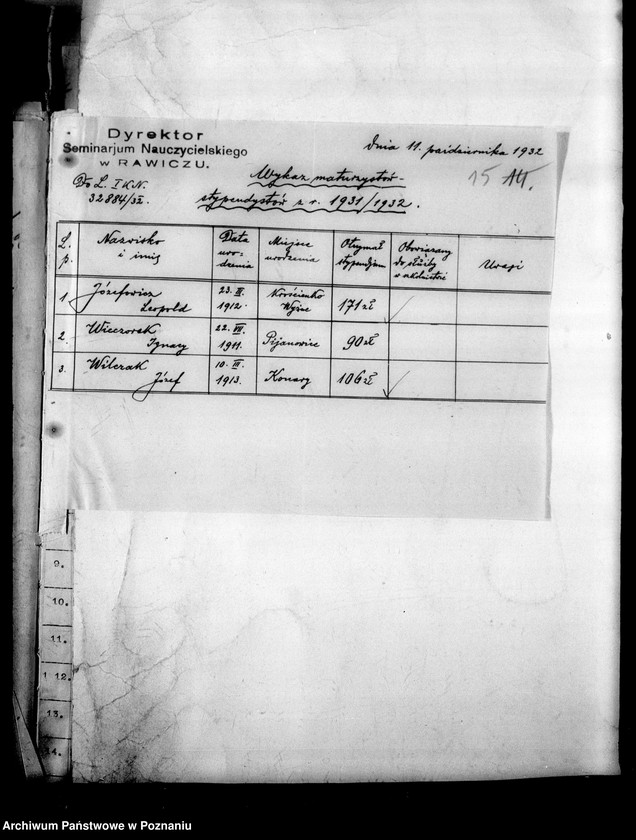 Dyrektor
Seminarjum Nauczycielskiego
w RAWICZU.
dnia 11. października 1932
Do L. I K.N.
32884/32.
15 
Wykaz maturzystów-
stypendystów z r. 1931/1932.
L. p. Nazwisko i imię Data uro-dzenia Miejsce urodzenia Otrzymał stypendjum Obowiązany do służby w szkolnictwie Uwagi
1. Józefowicz Leopold 23. III. 1912. Krościenko Wyżne 171 zł
2. Wieczorek Ignacy 22. VII. 1911. Pijanowice 90 zł
3. Wilczak Józef 10. III. 1913. Konary 106 zł
9.
10.
11.
12.
13.
14.
Archiwum Państwowe w Poznaniu